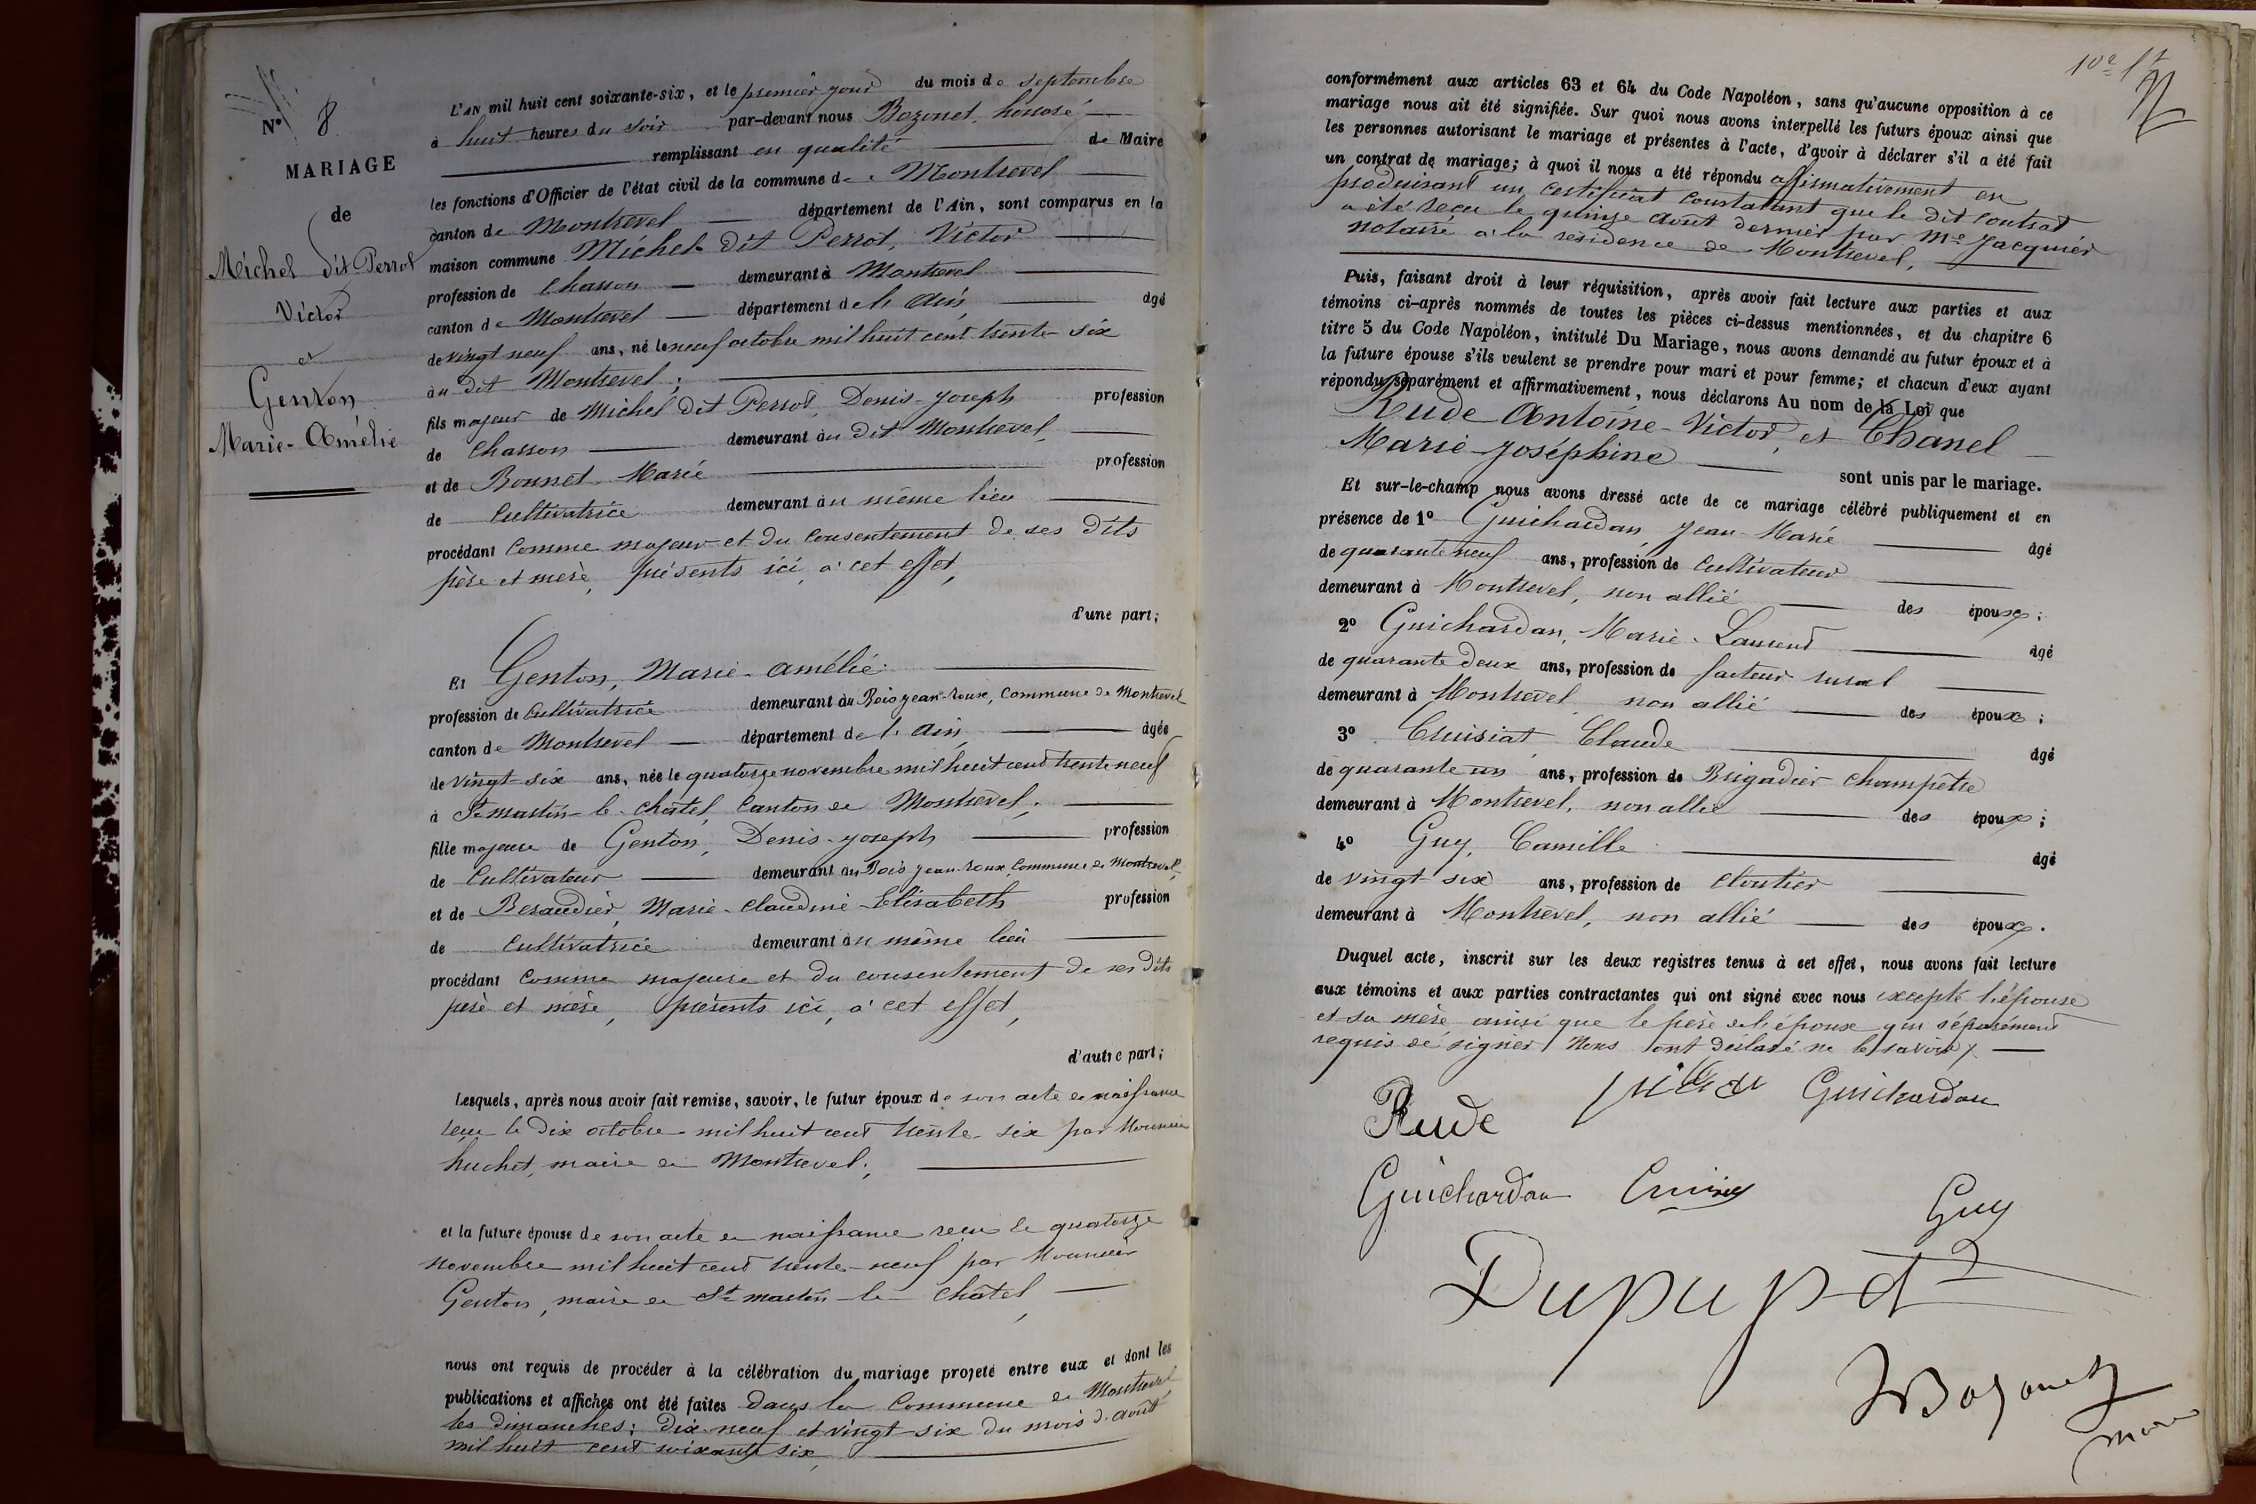 N° 8
MARIAGE
de
Michel dit Perrot
Victor
et
Genton
Marie-Amélie
L'AN mil huit cent soixante-six, et le premier jour du mois de septembre
à huit heures du soir par-devant nous Bozonet, honoré
remplissant en qualité de Maire
les fonctions d'Officier de l'état civil de la commune de Montrevel
canton de Montrevel département de l'Ain, sont comparus en la
maison commune Michel dit Perrot, Victor
profession de Charron demeurant à Montrevel
canton de Montrevel département de l'Ain, âgé
de vingt neuf ans, né le neuf octobre mil huit cent trente-six
à u dit Montrevel;
fils majeur de Michel dit Perrot, Denis-Joseph profession
de Charron demeurant à u dit Montrevel,
et de Bonnet Marie profession
de Cultivatrice demeurant au même lieu
procédant comme majeur et du consentement de ses dits
père et mère, présents ici à cet effet,
d'une part;
Et Genton, Marie-Amélie
profession de Cultivatrice demeurant au Bois Jean-Roux, Commune de Montrevel
canton de Montrevel département de l'Ain, âgée
de vingt-six ans, née le quatorze novembre mil huit cent trente neuf
à St martin-le-chatel, Canton de Montrevel,
fille majeure de Genton, Denis-Joseph profession
de Cultivateur demeurant au Bois Jean-Roux Commune de Montrevel,
et de Beraudier, Marie-Claudine-Elisabeth profession
de Cultivatrice demeurant au même lieu
procédant comme majeure et du consentement de ses dits
père et mère, présents ici, à cet effet,
d'autre part;
Lesquels, après nous avoir fait remise, savoir, le futur époux de son acte de naissance
reçu le dix octobre mil huit cent trente-six par Monsieur
huchet, maire de Montrevel;
et la future épouse de son acte de naissance reçu le quatorze
novembre mil huit cent trente-neuf par Monsieur
Genton, maire de St martin-le-chatel,
nous ont requis de procéder à la célébration du mariage projeté entre eux et dont les
publications et affiches ont été faites dans la Commune de Montrevel
les dimanches: dix-neuf et vingt-six du mois d'août
mil huit cent soixante six,
conformément aux articles 63 et 64 du Code Napoléon, sans qu'aucune opposition à ce
mariage nous ait été signifiée. Sur quoi nous avons interpellé les futurs époux ainsi que
les personnes autorisant le mariage et présentes à l'acte, d'avoir à déclarer s'il a été fait
un contrat de mariage; à quoi il nous a été répondu affirmativement en
produisant un certificat constatant que le dit contrat
a été reçu le quinze août dernier par Me Jacquier
notaire à la résidence de Montrevel,
Puis, faisant droit à leur réquisition, après avoir fait lecture aux parties et aux
témoins ci-après nommés de toutes les pièces ci-dessus mentionnées, et du chapitre 6
titre 5 du Code Napoléon, intitulé Du Mariage, nous avons demandé au futur époux et à
la future épouse s'ils veulent se prendre pour mari et pour femme; et chacun d'eux ayant
répondu séparément et affirmativement, nous déclarons Au nom de la Loi que
Rude Antoine-Victor, et Chanel
Marie-Joséphine
sont unis par le mariage.
Et sur-le-champ nous avons dressé acte de ce mariage célébré publiquement et en
présence de 1° Guichardan, Jean-Marie âgé
de quarante neuf ans, profession de Cultivateur
demeurant à Montrevel, non allié des époux;
2° Guichardan, Marie-Laurent âgé
de quarante deux ans, profession de facteur rural
demeurant à Montrevel non allié des époux;
3° Cruisiat Claude âgé
de quarante un ans, profession de Brigadier champêtre
demeurant à Montrevel, non allié des époux;
4° Guy, Camille âgé
de vingt six ans, profession de cloutier
demeurant à Montrevel, non allié des époux.
Duquel acte, inscrit sur les deux registres tenus à cet effet, nous avons fait lecture
aux témoins et aux parties contractantes qui ont signé avec nous excepté l'épouse
et sa mère ainsi que le père de l'époux qui séparément
requis de signer nous ont déclaré ne le savoir
Rude Guichardan
Guichardan Guy
Bozonet